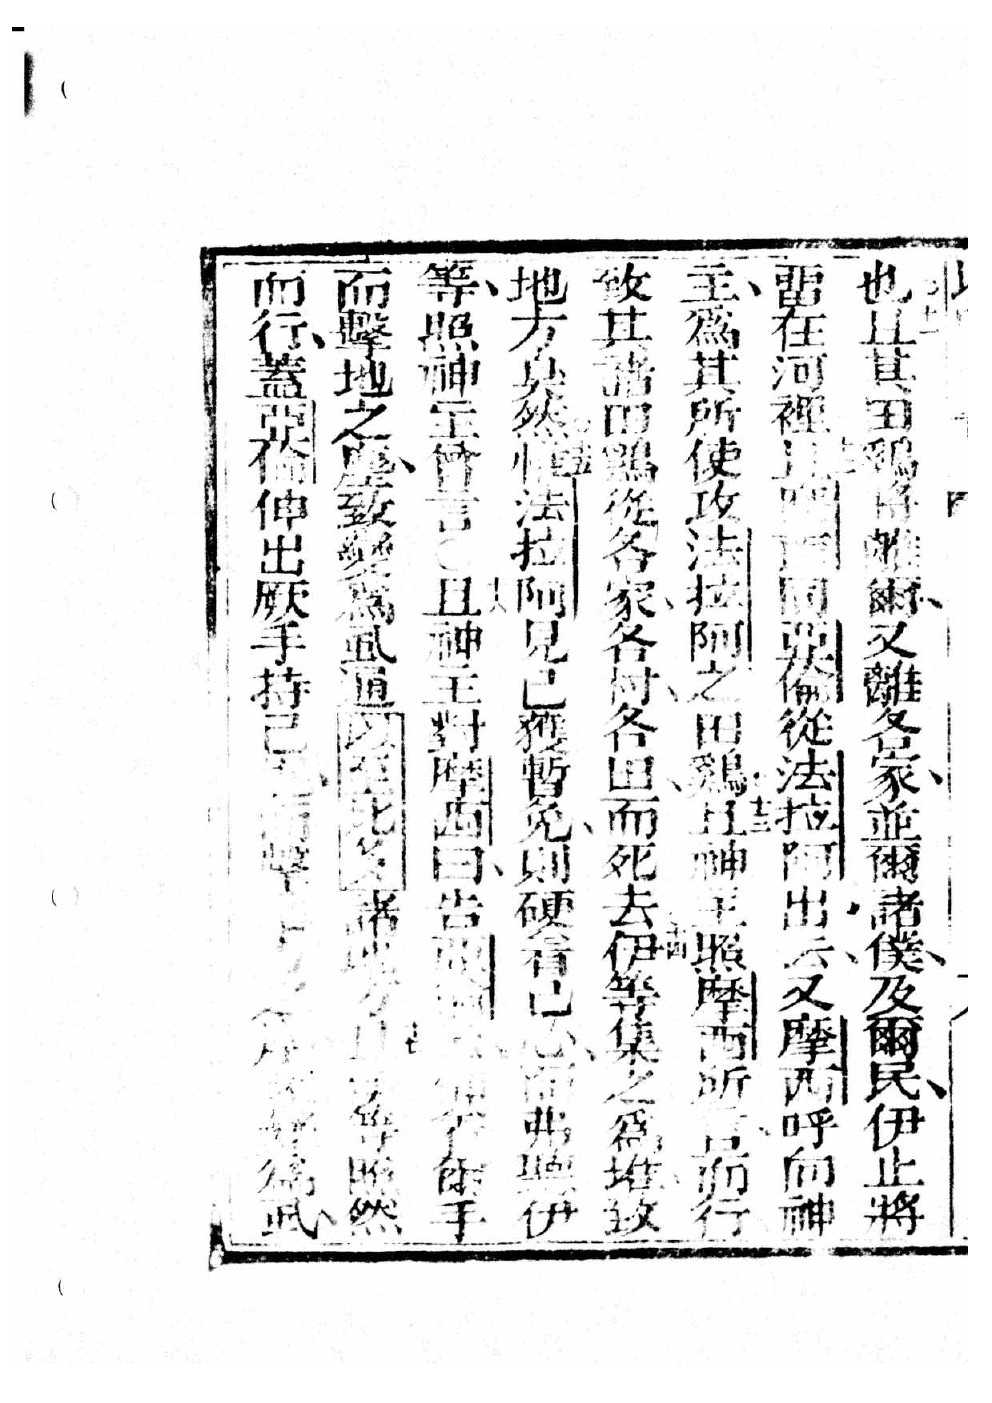 也且其田鷄將離爾又離各家並爾諸僕及爾民伊止將
畱在河裡且摩西同亞倫從法拉阿出去又摩西呼向神
主爲其所使攻法拉阿之田鷄且神主照摩西所言而行
致其諸田鷄從各家各村各田而死去伊等集之爲堆致
地方臭然惟法拉阿見已獲暫免則硬着己心而弗聽伊
等照神主曾言○且神主對摩西曰告亞倫 伸 爾手
而擊地之塵致變爲虱通以至比多諸地方且伊等照然
而行蓋亞倫伸出厥手持己 而擊 爲虱